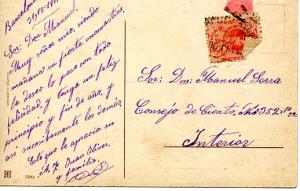 Barcelona
Sor. Dn. Manuel.
Muy Sr. mio, siendo
mañana su fiesta onomástica,
le deseo lo pase con toda
felicidad, y tenga un feliz
principio y fin de año, y
asi sucesivamente los demás
Este que le aprecia su
Juan Oliver
y familia
Sor: Dn: Manuel Serra
Consejo de Ciento, No 352
Interior